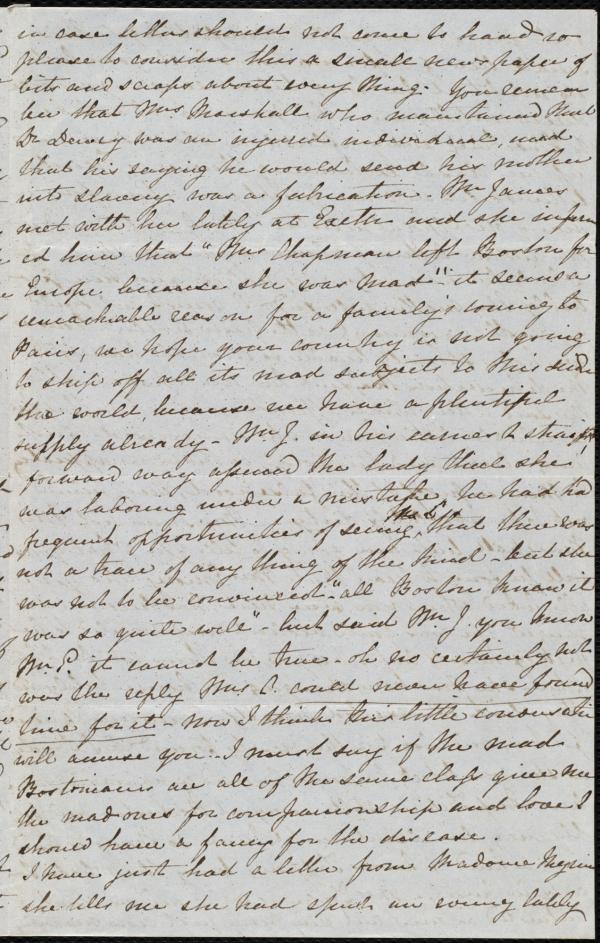 in case letters should not come to hand so
please to consider this a small newspaper of
bits and scraps about every thing. You remem
ber that Mrs Marshall who maintained that
Dr Dewey was an injured individual, and
that his saying he would send his mother
into slavery was a fabrication. Mr James
met with her lately at Exeter and she inform
ed him that "Mrs Chapman left Boston for
Europe, because she was mad"! it seems a
remarkable reason for a family's coming to
Paris, we hope your country is not going
to ship off all its mad subjects to this side
the world, because we have a plentiful
supply already - Mr J. in his earnest straight
forward way assured the lady that she
was laboring under a mistake, he had had
frequent opportunities of seeing Mrs C, that there was
not a trace of any thing of the kind - but she
was not to be convinced - "all Boston knew it
was so quite well" - but said Mr J. you know
it cannot be true - oh no certainly not
was the reply Mrs C. could never have found
time for it - Now I think this little conversation
will amuse you - I must say if the mad
Bostonians are all of the same class give me
the mad ones for companionship and love I
should have a fancy for the disease.
I have just had a letter from Madame
she tells me she had spent an evening lately